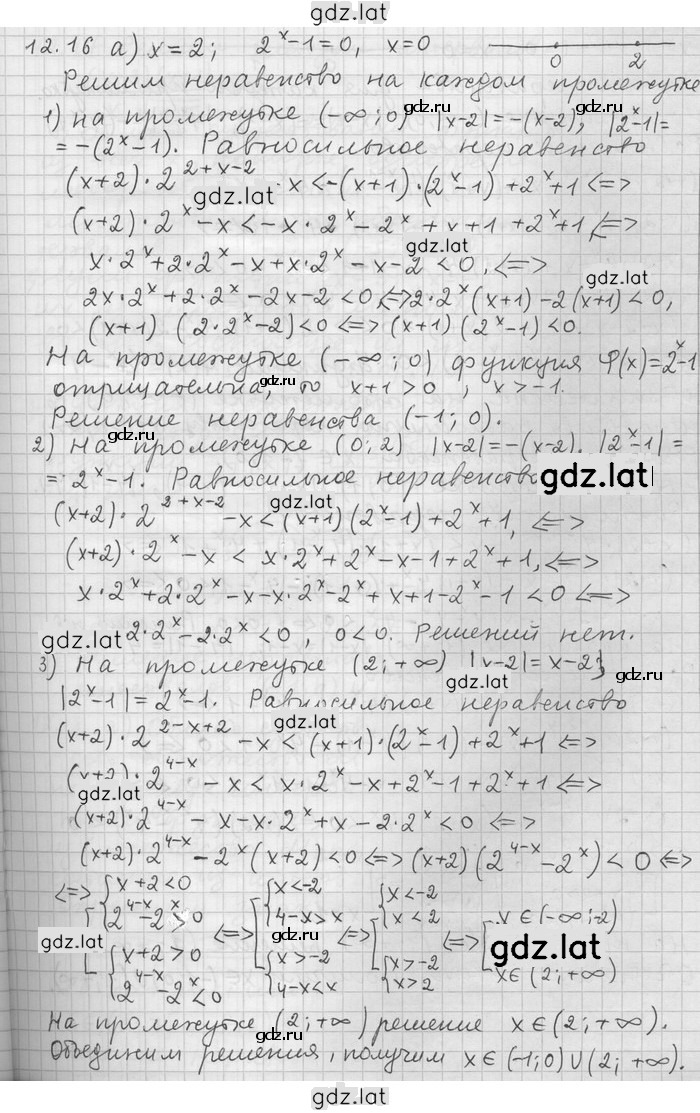 gdz.lat
12.16 а) x = 2; 2^x-1=0, x=0
0 2
Решим неравенство на каждом промежутке
gdz.lat
1) на промежутке (-∞; 0) |x-2|=-(x-2); |2^x-1|=
= -(2^x-1). Равносильное неравенство
gdz.lat
(x+2)·2^{2+x-2} - x < -(x+1)·(2^x-1)+2^x+1 <=>
gdz.lat
(x+2)·2^x - x < -x·2^x - 2^x + x+1 +2^x+1, <=>
gdz.lat
x·2^x+2·2^x-x+x·2^x-x-2<0, <=>
gdz.lat
2x·2^x+2·2^x-2x-2<0 <=> 2·2^x(x+1)-2(x+1)<0,
(x+1) (2·2^x-2)<0 <=> (x+1)(2^x-1)<0.
gdz.lat
На промежутке (-∞; 0) функция φ(x)=2^x-1
gdz.lat
отрицательна, то x+1>0, x>-1.
Решение неравенства (-1; 0).
gdz.lat
2) На промежутке (0; 2) |x-2|=-(x-2). |2^x-1| =
= 2^x-1. Равносильное неравенство
gdz.lat
(x+2)·2^{2+x-2} - x < (x+1)(2^x-1)+2^x+1, <=>
gdz.lat
(x+2)·2^x - x < x·2^x+2^x-x-1+2^x+1, <=>
gdz.lat
x·2^x+2·2^x-x-x·2^x-2^x+x+1-2^x-1<0 <=>
gdz.lat
2·2^x-2·2^x<0, 0<0. Решений нет.
3) На промежутке (2; +∞) |x-2|=x-2;
gdz.lat
|2^x-1|=2^x-1. Равносильное неравенство
gdz.lat
(x+2)·2^{2-x+2} - x < (x+1)·(2^x-1)+2^x+1 <=>
(x+2)·2^{4-x} - x < x·2^x-x+2^x-1+2^x+1 <=>
gdz.lat
(x+2)·2^{4-x} - x-x·2^x+x-2·2^x<0 <=>
gdz.lat
(x+2)·2^{4-x}-2^x(x+2)<0 <=> (x+2)(2^{4-x}-2^x)<0 <=>
gdz.lat
<=> [ { x+2<0 2^{4-x}-2^x>0 { x+2>0 2^{4-x}-2^x<0 <=> [ { x<-2 4-x>x { x>-2 4-x<x <=> [ { x<-2 x<2 { x>-2 x>2 <=> [ x∈(-∞;-2) x∈(2;+∞)
gdz.lat
gdz.lat
gdz.lat
На промежутке (2; +∞) решение x∈(2; +∞).
Объединим решения, получим x∈(-1; 0)∪(2; +∞).
gdz.lat